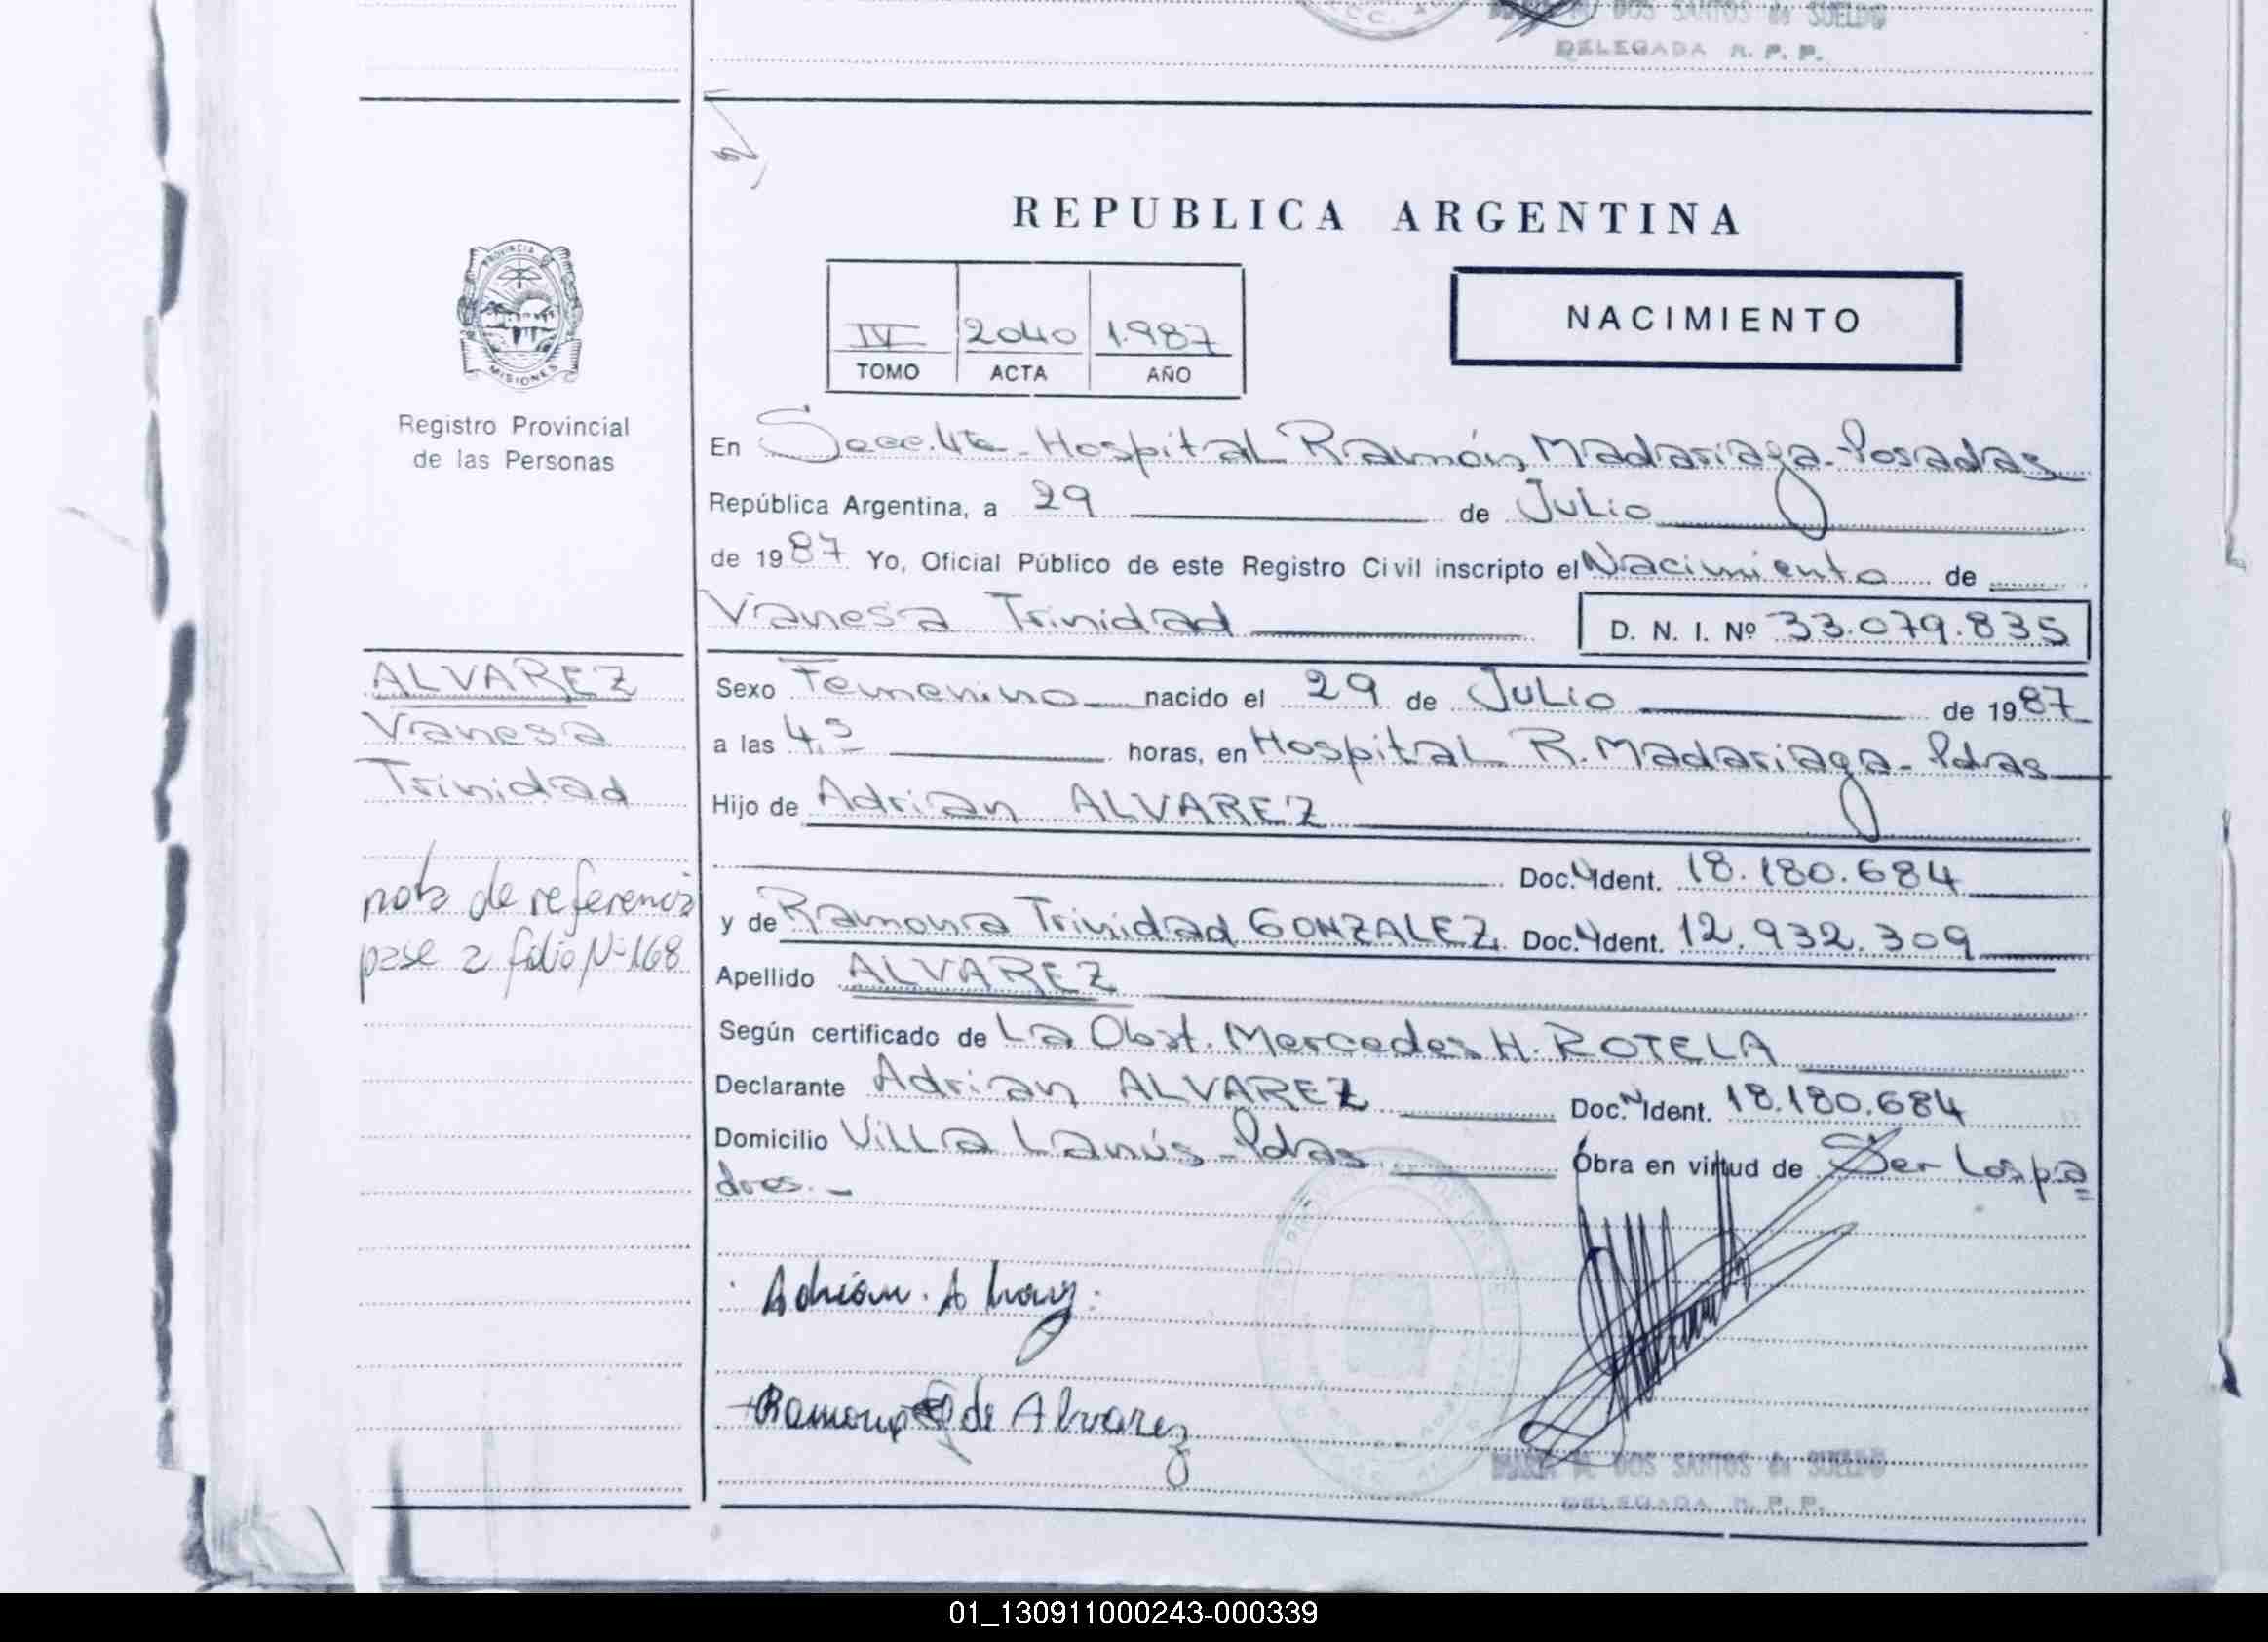 DOS SANTOS de SUELDO
DELEGADA R. P. P.
REPUBLICA ARGENTINA
PROVINCIA
MISIONES
IV 2040 1.987
TOMO ACTA AÑO
NACIMIENTO
Registro Provincial
de las Personas
En Secc. 4ta - Hospital Ramón Madariaga - Posadas
República Argentina, a 29 de Julio
de 1987 Yo, Oficial Público de este Registro Civil inscripto el Nacimiento de
Vanesa Trinidad D. N. I. Nº 33.079.835
ALVAREZ
Vanesa
Trinidad
nota de referencia
pase a folio Nº 168
Sexo Femenino nacido el 29 de Julio de 1987
a las 4,5 horas, en Hospital R. Madariaga - Pdas
Hijo de Adrian ALVAREZ
Doc. Ident. 18.180.684
y de Ramona Trinidad GONZALEZ Doc. Ident. 12.932.309
Apellido ALVAREZ
Según certificado de La Obst. Mercedes H. ROTELA
Declarante Adrian ALVAREZ Doc. N Ident. 18.180.684
Domicilio Villa Lanús - Pdas Obra en virtud de Ser los pa=
dres.-
Adrián. Alvarez
Ramona G de Alvarez
DOS SANTOS de SUELDO
DELEGADA R. P. P.
01_130911000243-000339